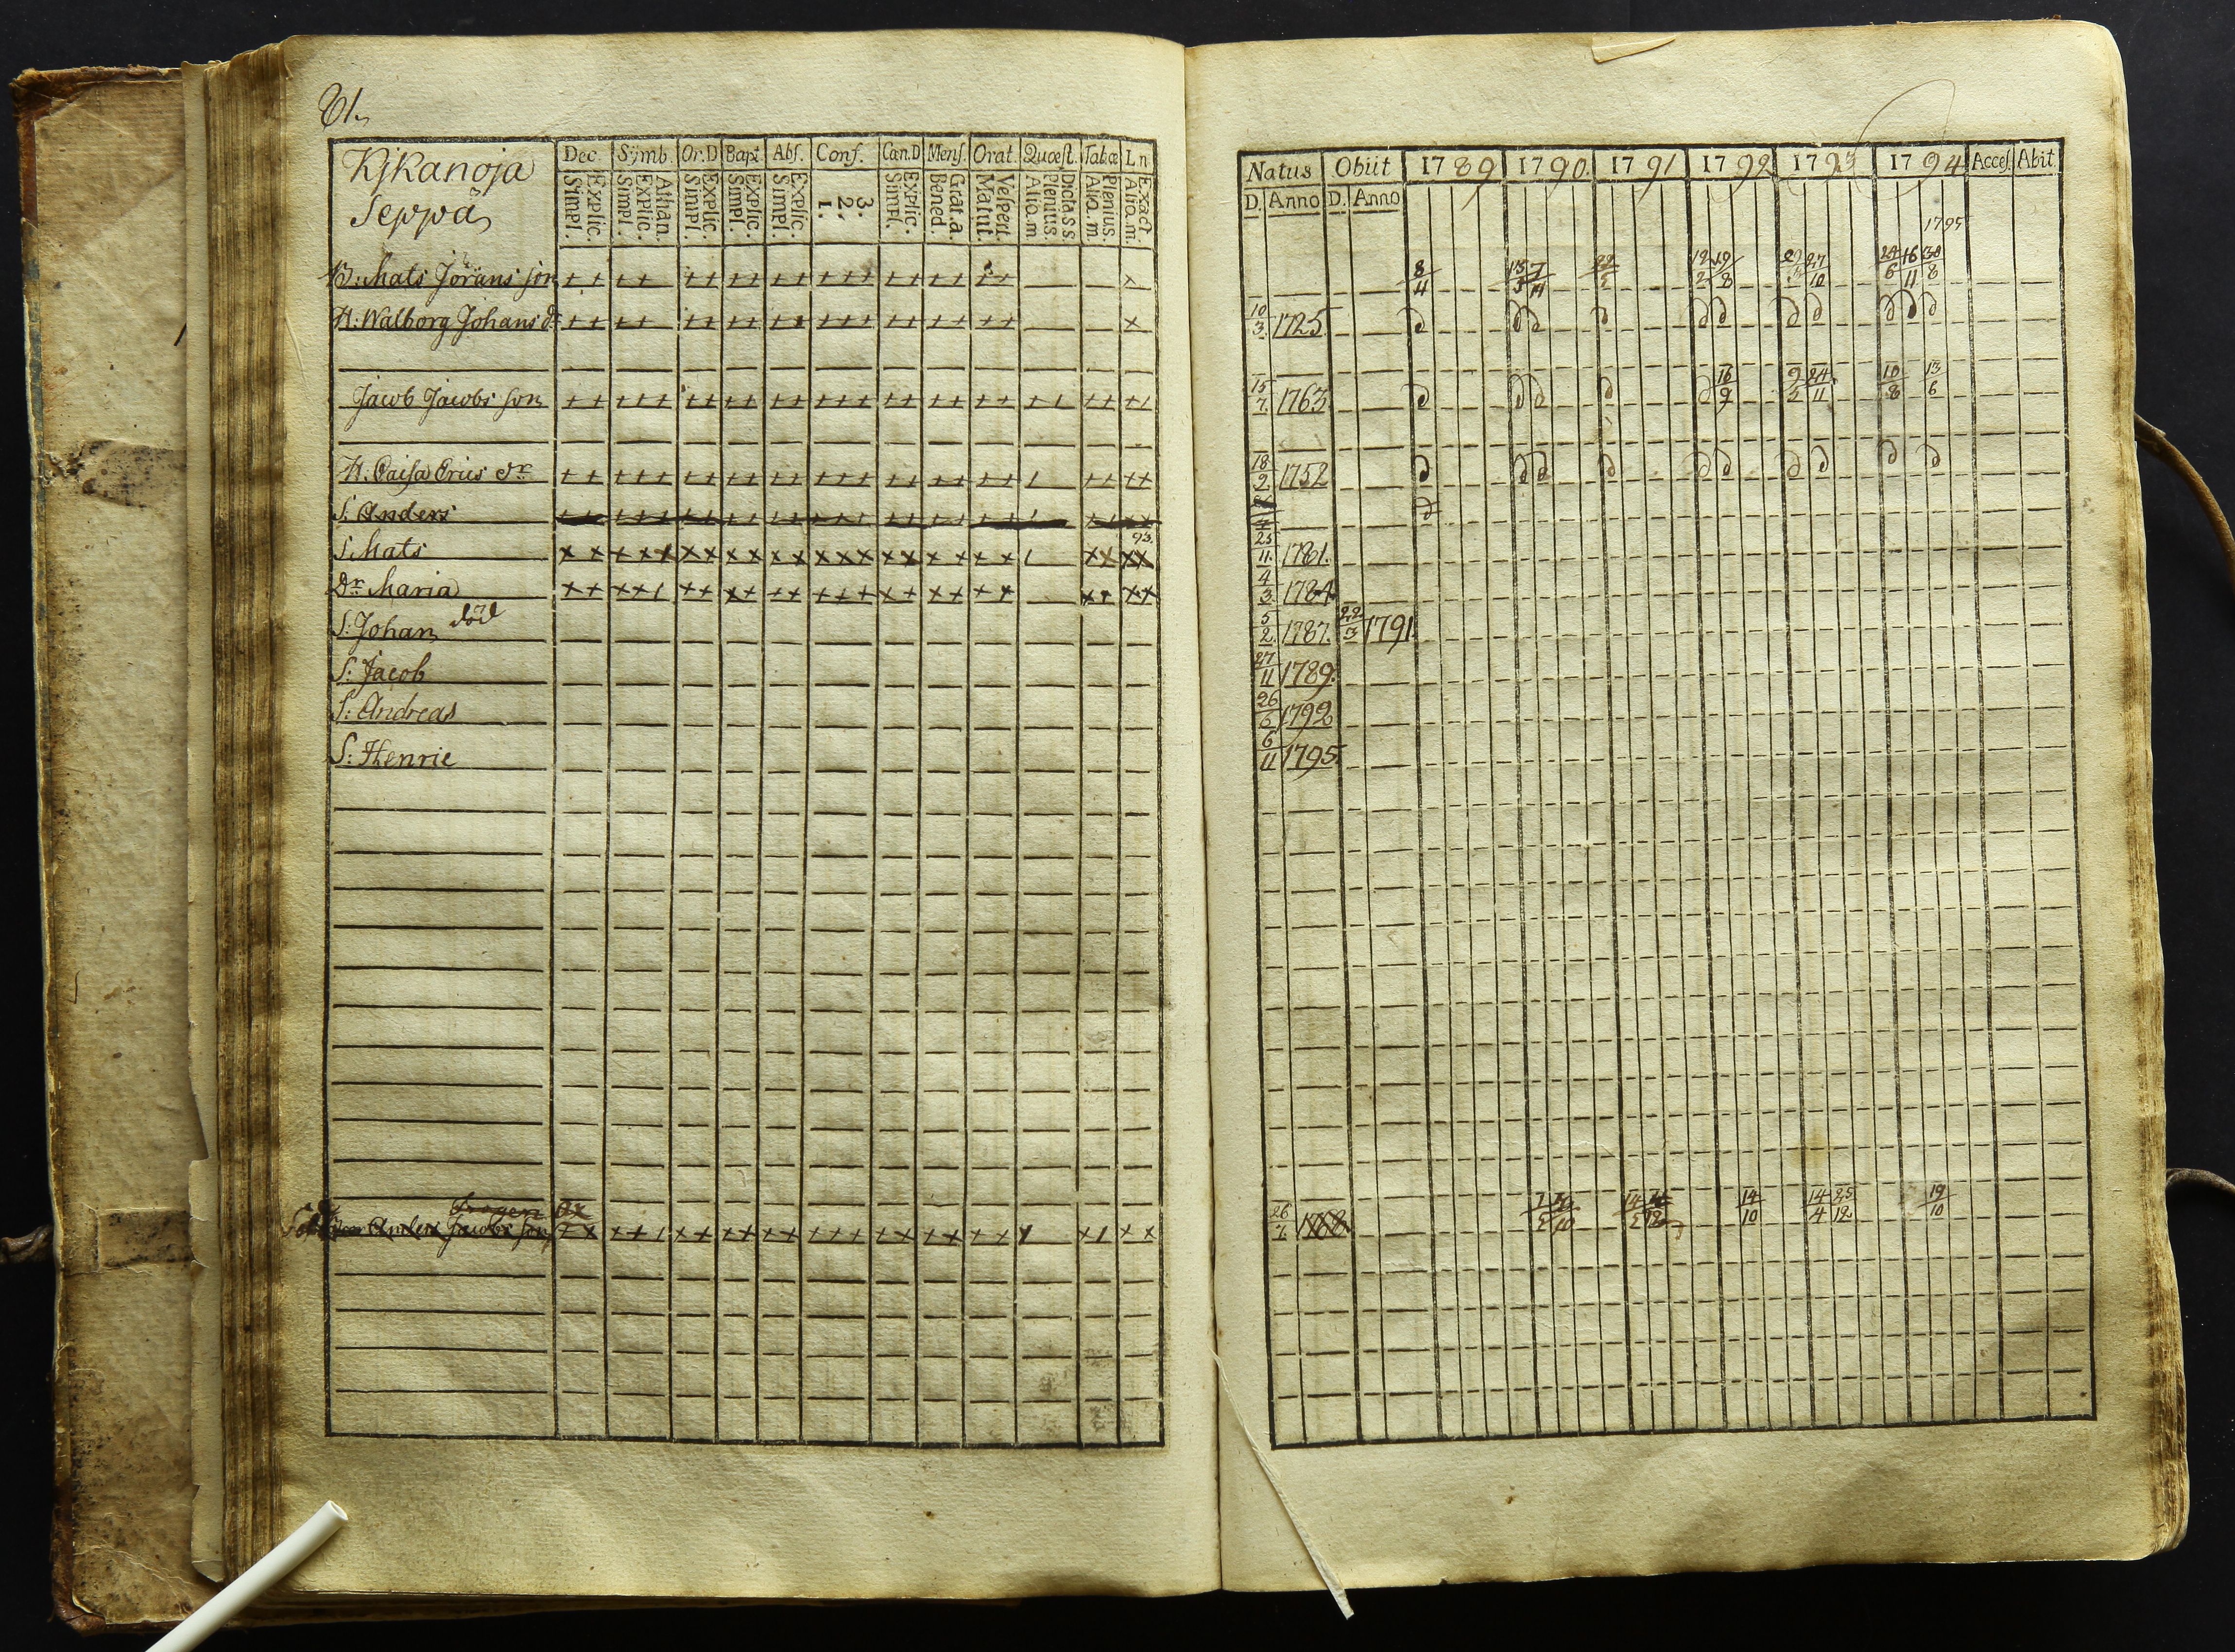 81.
Kjkanoja
Seppä
Dec. Symb. Or.D Bapt Abs. Conf. Can.D Mens. Orat. Quæst. Tabæ Ln
Simpl. Explic. Simpl. Explic. Athan. Simpl. Explic. Simpl. Explic. Simpl. Explic. 1. 2. 3. Simpl. Explic. Bened. Grat.a. Matut. Vespert. Alio.m Plenius. Dicta.s.s Alio.m Plenius. Alio.m. Exact.
B: Mats Jörans son
H: Walborg Johans dr
Jacob Jacobs son
H: Caisa Erics dr
S. Anders
S. Mats 93.
Dr Maria
S: Johan död
S: Jacob
S: Andreas
S: Henric
Anders Jacobs son
Natus Obiit 1789 1790. 1791 1792 1793 1794 Acces. Abit.
D. Anno D. Anno
1795
8/4 22/5 12/2 19/8 27/10 24/6 16/11 30/8
10/3. 1725
15/7. 1763 16/9 9/5 24/11 10/8 13/6
18/2 1752
25/11. 1781.
4/3. 1784
5/2. 1787. 22/3 1791
27/11 1789.
26/6 1792
6/11 1795.
26/7. 14/10 14/4 25/12 19/10